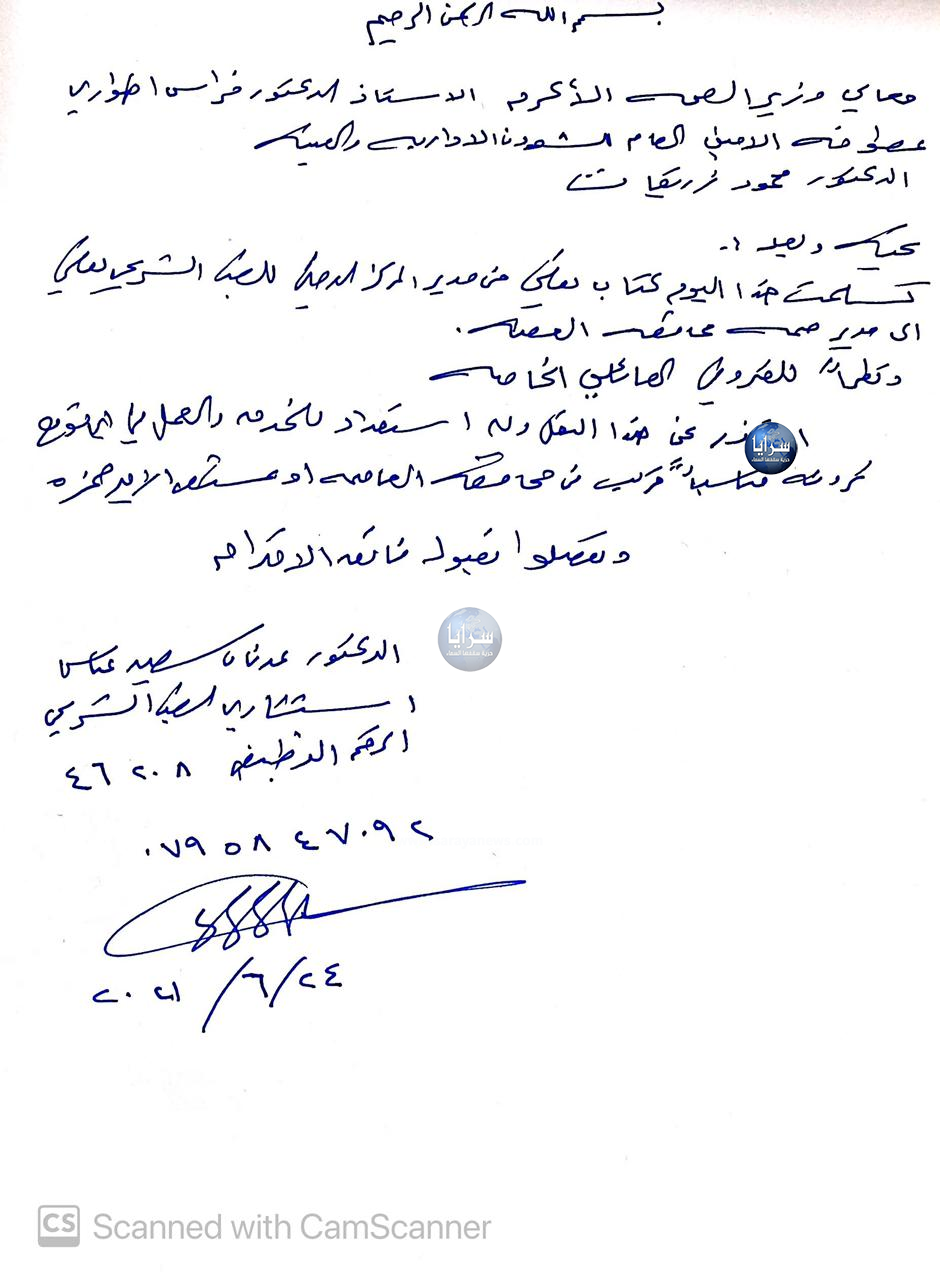 بسم الله الرحمن الرحيم
معالي وزير الصحه الأكرم الاستاذ الدكتور فراس الهواري
عطوفه الامين العام للشؤون الاداريه والفنيه
الدكتور محمود زريقات
تحيه وبعد ؛-
تسلمت هذا اليوم كتاب نقلي من مدير المركز الوطني للطب الشرعي نقلي
الى مدير صحه محافظه العقبه .
ونظراً للظروف العائلي الخاصه
عن هذا النقل وله استعداد للخدمه والعمل في اي موقع
ترونه مناسباً قريب من محافظه العاصمه او مستشفى الامير حمزه
وتفضلوا بقبول فائقه الاحترام
الدكتور عدنان سعيد عباس
استشاري الطب الشرعي
الرقم الوظيفي ٤٦٢٠٨
٠٧٩٥٨٤٧٠٩٢
٢٠٢١/٦/٢٤
سرايا
حرية سقفها السماء
سرايا
حرية سقفها السماء
CS Scanned with CamScanner